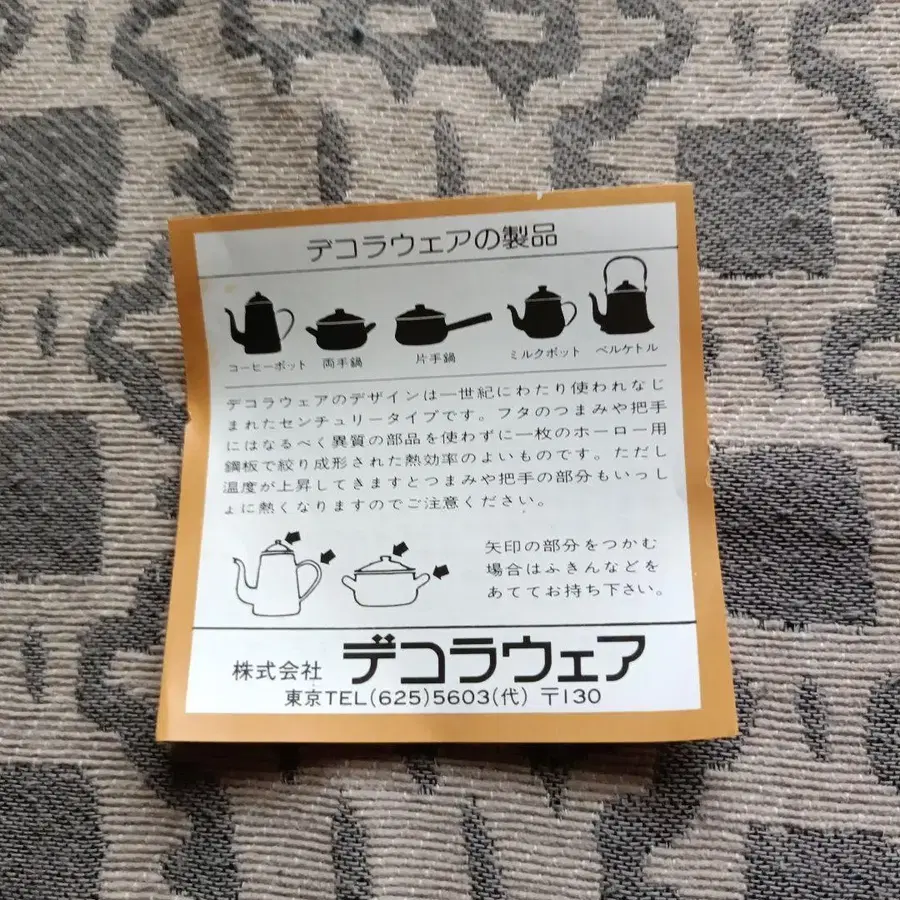 デコラウェアの製品
コーヒーポット 両手鍋 片手鍋 ミルクポット ベルケトル
デコラウェアのデザインは一世紀にわたり使われなじ
まれたセンチュリータイプです。フタのつまみや把手
にはなるべく異質の部品を使わずに一枚のホーロー用
鋼板で絞り成形された熱効率のよいものです。ただし
温度が上昇してきますとつまみや把手の部分もいっし
ょに熱くなりますのでご注意ください。
矢印の部分をつかむ
場合はふきんなどを
あててお持ち下さい。
株式会社 デコラウェア
東京TEL(625)5603(代) 〒130